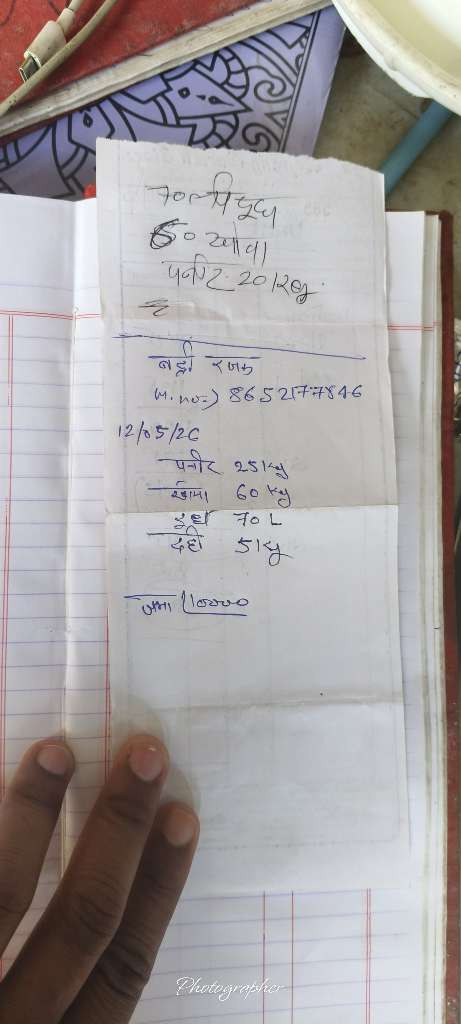 70 ली दूध
60 खोवा
पनीर 20 Kg.
बद्री रजक
M. no. → 8652177846
12/05/26
पनीर 25 Kg
खोवा 60 Kg
दूध 70 L
दही 5 Kg
जमा 10000
Photographer